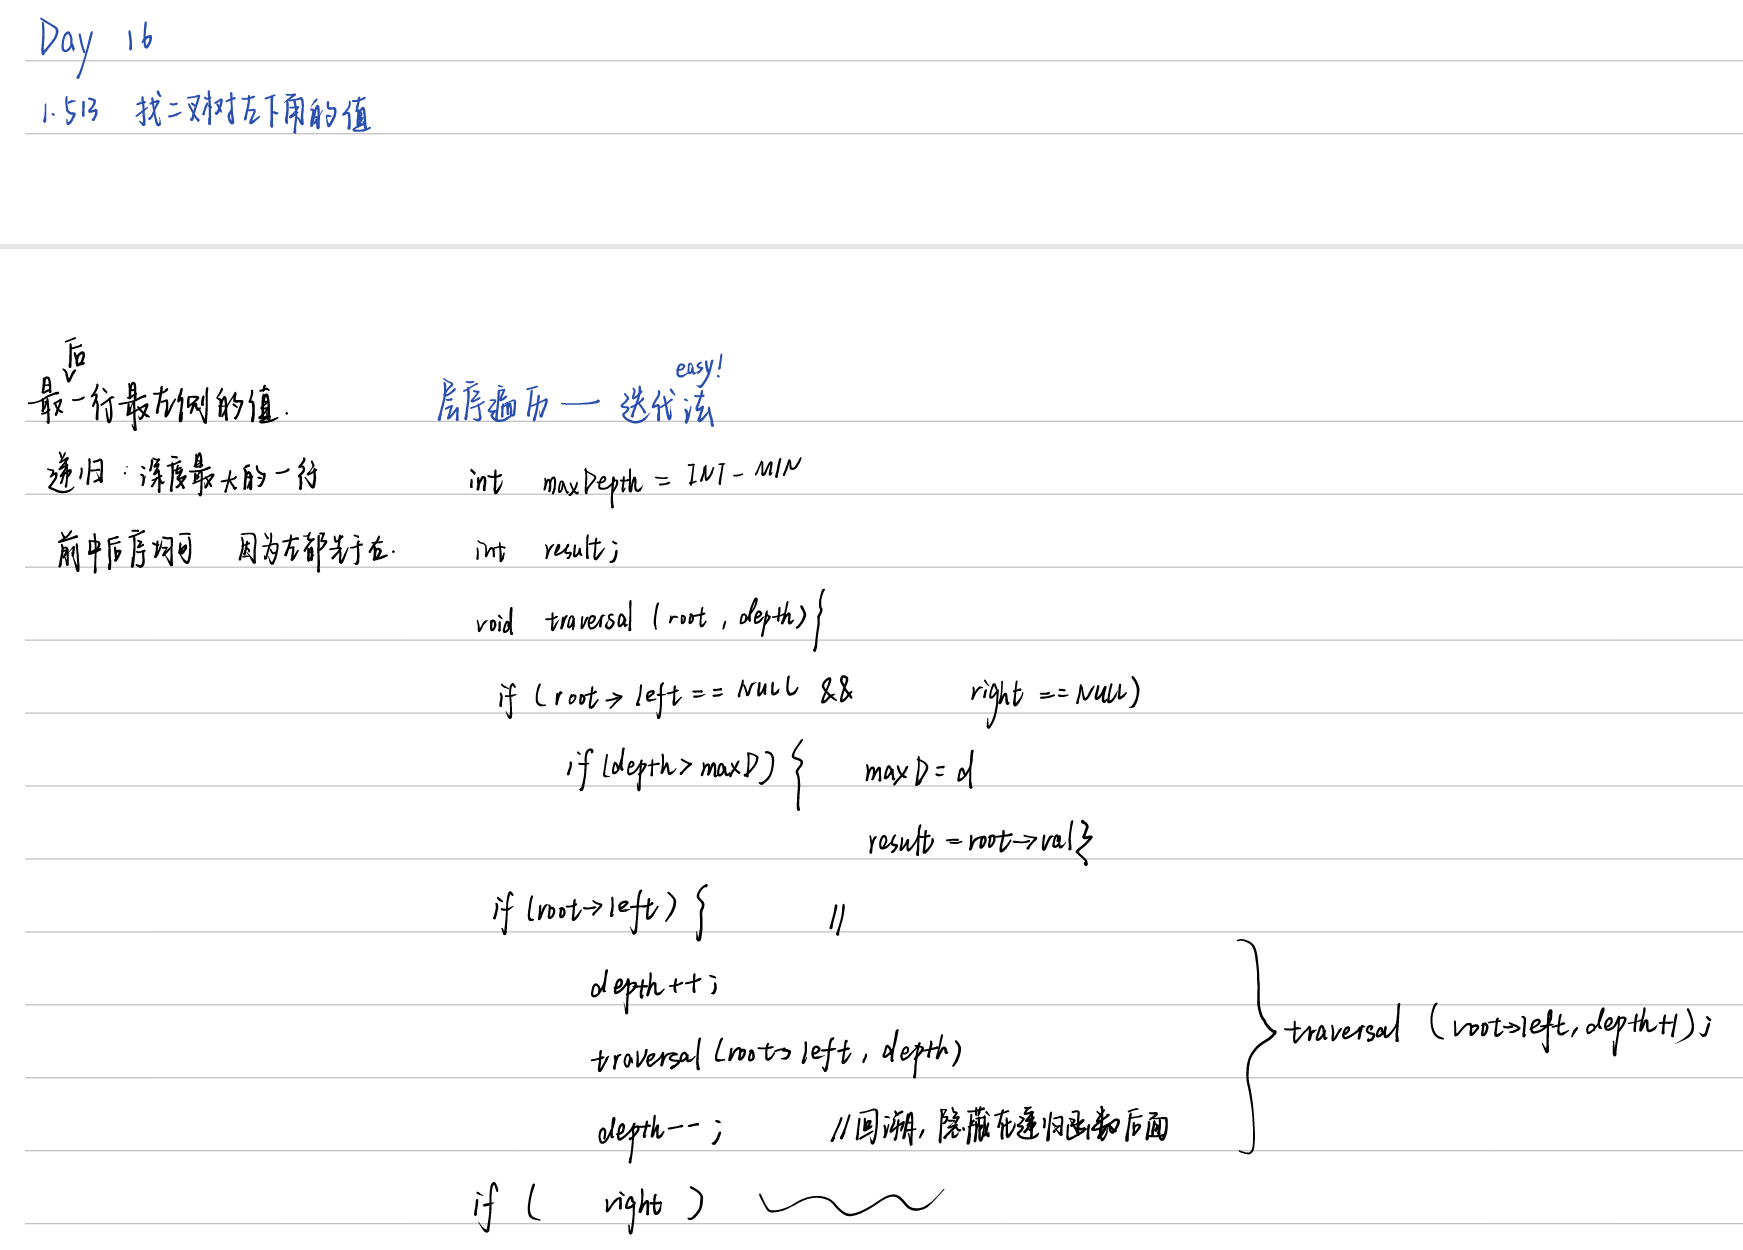 Day 16
1. 513 找二叉树左下角的值
最后一行最左侧的值.
层序遍历 — 迭代法 easy!
递归：深度最大的一行
int maxDepth = INT_MIN
前中后序均可 因为左都先于右.
int result;
void traversal (root, depth){
if (root→left == NULL && right == NULL)
if (depth > maxD) { maxD = d
result = root→val}
if (root→left) { //
depth++;
traversal (root→left, depth)
depth--; //回溯, 隐藏在递归函数后面
} traversal (root→left, depth+1);
if ( right )